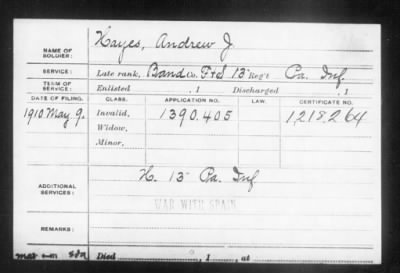 NAME OF SOLDIER: Hayes, Andrew J
SERVICE: Late rank, Band Co. F+S 13 Reg't Pa. Inf.
TERM OF SERVICE: Enlisted , 1 Discharged , 1
DATE OF FILING. CLASS. APPLICATION NO. LAW. CERTIFICATE NO.
1910 May 9. Invalid, 1390.405 1218.264
Widow,
Minor,
ADDITIONAL SERVICES: H. 13 Pa. Inf
WAR WITH SPAIN
REMARKS:
Died , 1 , at